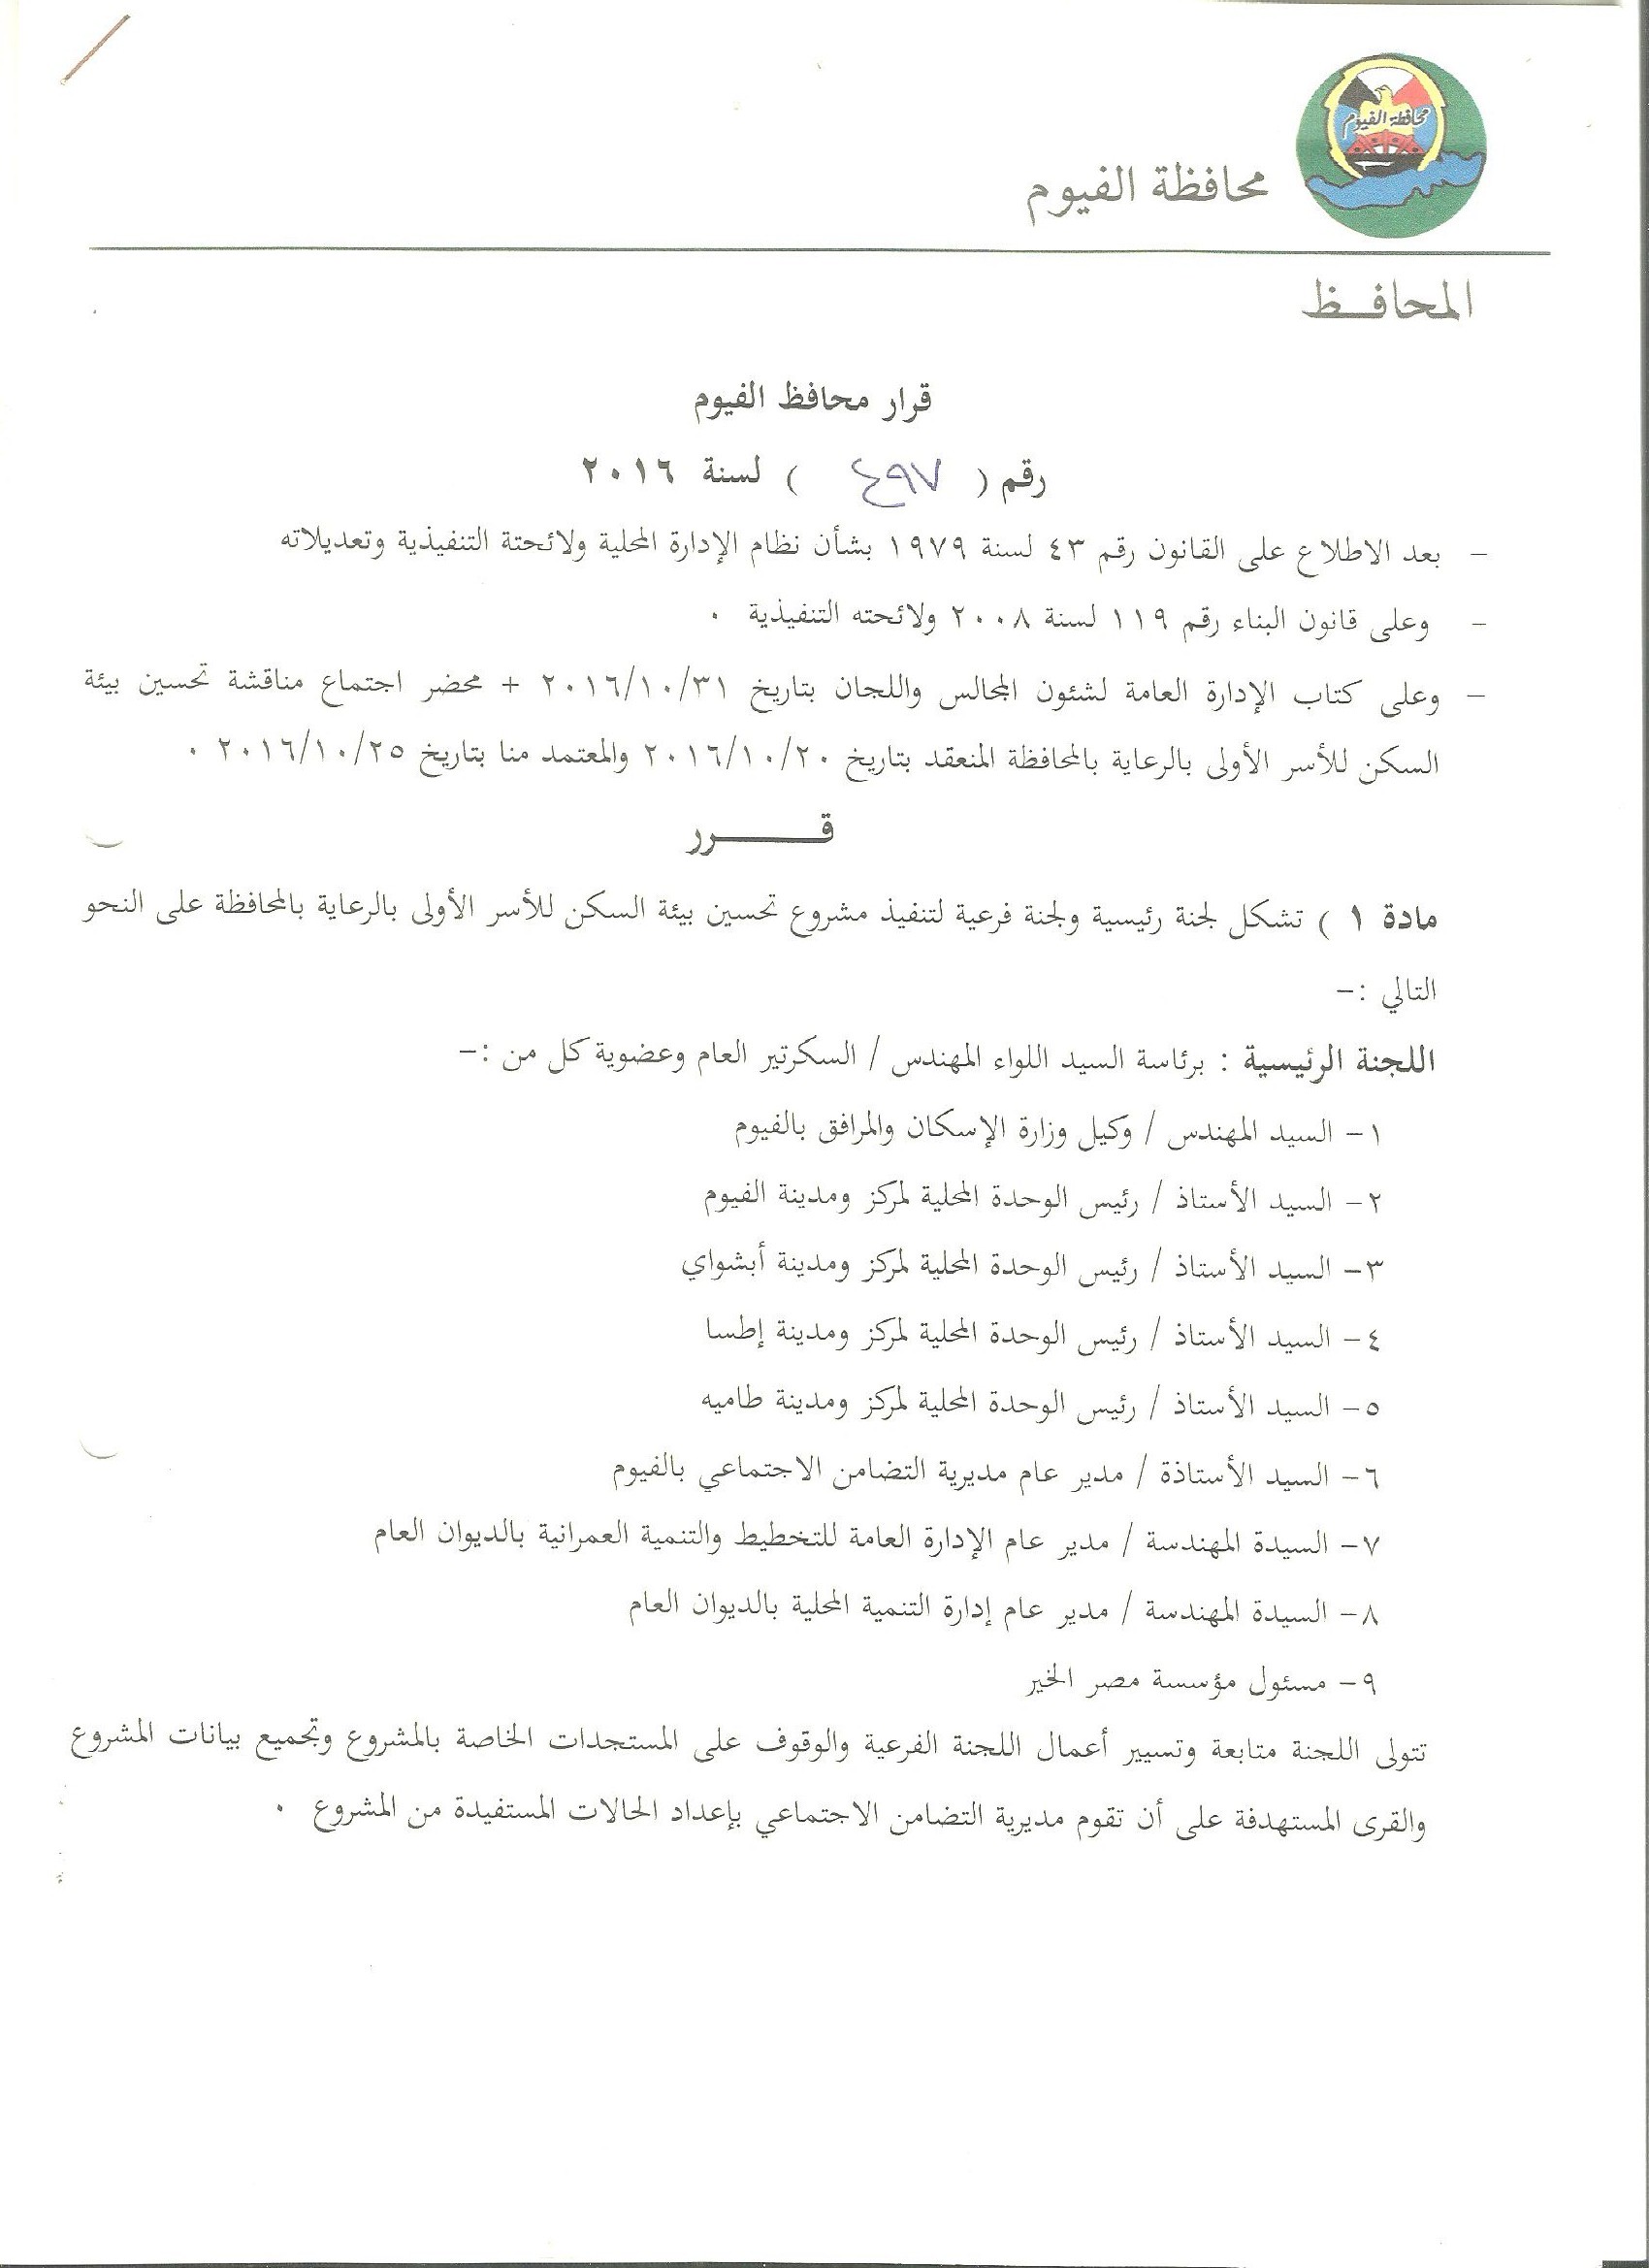 محافظة الفيوم
محافظة الفيوم
المحافـــظ
قرار محافظ الفيوم
رقم ( ٤٩٧ ) لسنة ٢٠١٦
- بعد الاطلاع على القانون رقم ٤٣ لسنة ١٩٧٩ بشأن نظام الإدارة المحلية ولائحتة التنفيذية وتعديلاته
- وعلى قانون البناء رقم ١١٩ لسنة ٢٠٠٨ ولائحته التنفيذية .
- وعلى كتاب الإدارة العامة لشئون المجالس واللجان بتاريخ ٢٠١٦/١٠/٣١ + محضر اجتماع مناقشة تحسين بيئة
السكن للأسر الأولى بالرعاية بالمحافظة المنعقد بتاريخ ٢٠١٦/١٠/٢٠ والمعتمد منا بتاريخ ٢٠١٦/١٠/٢٥ .
قــــــــرر
مادة ١ ) تشكل لجنة رئيسية ولجنة فرعية لتنفيذ مشروع تحسين بيئة السكن للأسر الأولى بالرعاية بالمحافظة على النحو
التالي :-
اللجنة الرئيسية : برئاسة السيد اللواء المهندس / السكرتير العام وعضوية كل من :-
١- السيد المهندس / وكيل وزارة الإسكان والمرافق بالفيوم
٢- السيد الأستاذ / رئيس الوحدة المحلية لمركز ومدينة الفيوم
٣- السيد الأستاذ / رئيس الوحدة المحلية لمركز ومدينة أبشواي
٤- السيد الأستاذ / رئيس الوحدة المحلية لمركز ومدينة إطسا
٥- السيد الأستاذ / رئيس الوحدة المحلية لمركز ومدينة طاميه
٦- السيد الأستاذة / مدير عام مديرية التضامن الاجتماعي بالفيوم
٧- السيدة المهندسة / مدير عام الإدارة العامة للتخطيط والتنمية العمرانية بالديوان العام
٨- السيدة المهندسة / مدير عام إدارة التنمية المحلية بالديوان العام
٩- مسئول مؤسسة مصر الخير
تتولى اللجنة متابعة وتسيير أعمال اللجنة الفرعية والوقوف على المستجدات الخاصة بالمشروع وتجميع بيانات المشروع
والقرى المستهدفة على أن تقوم مديرية التضامن الاجتماعي بإعداد الحالات المستفيدة من المشروع .